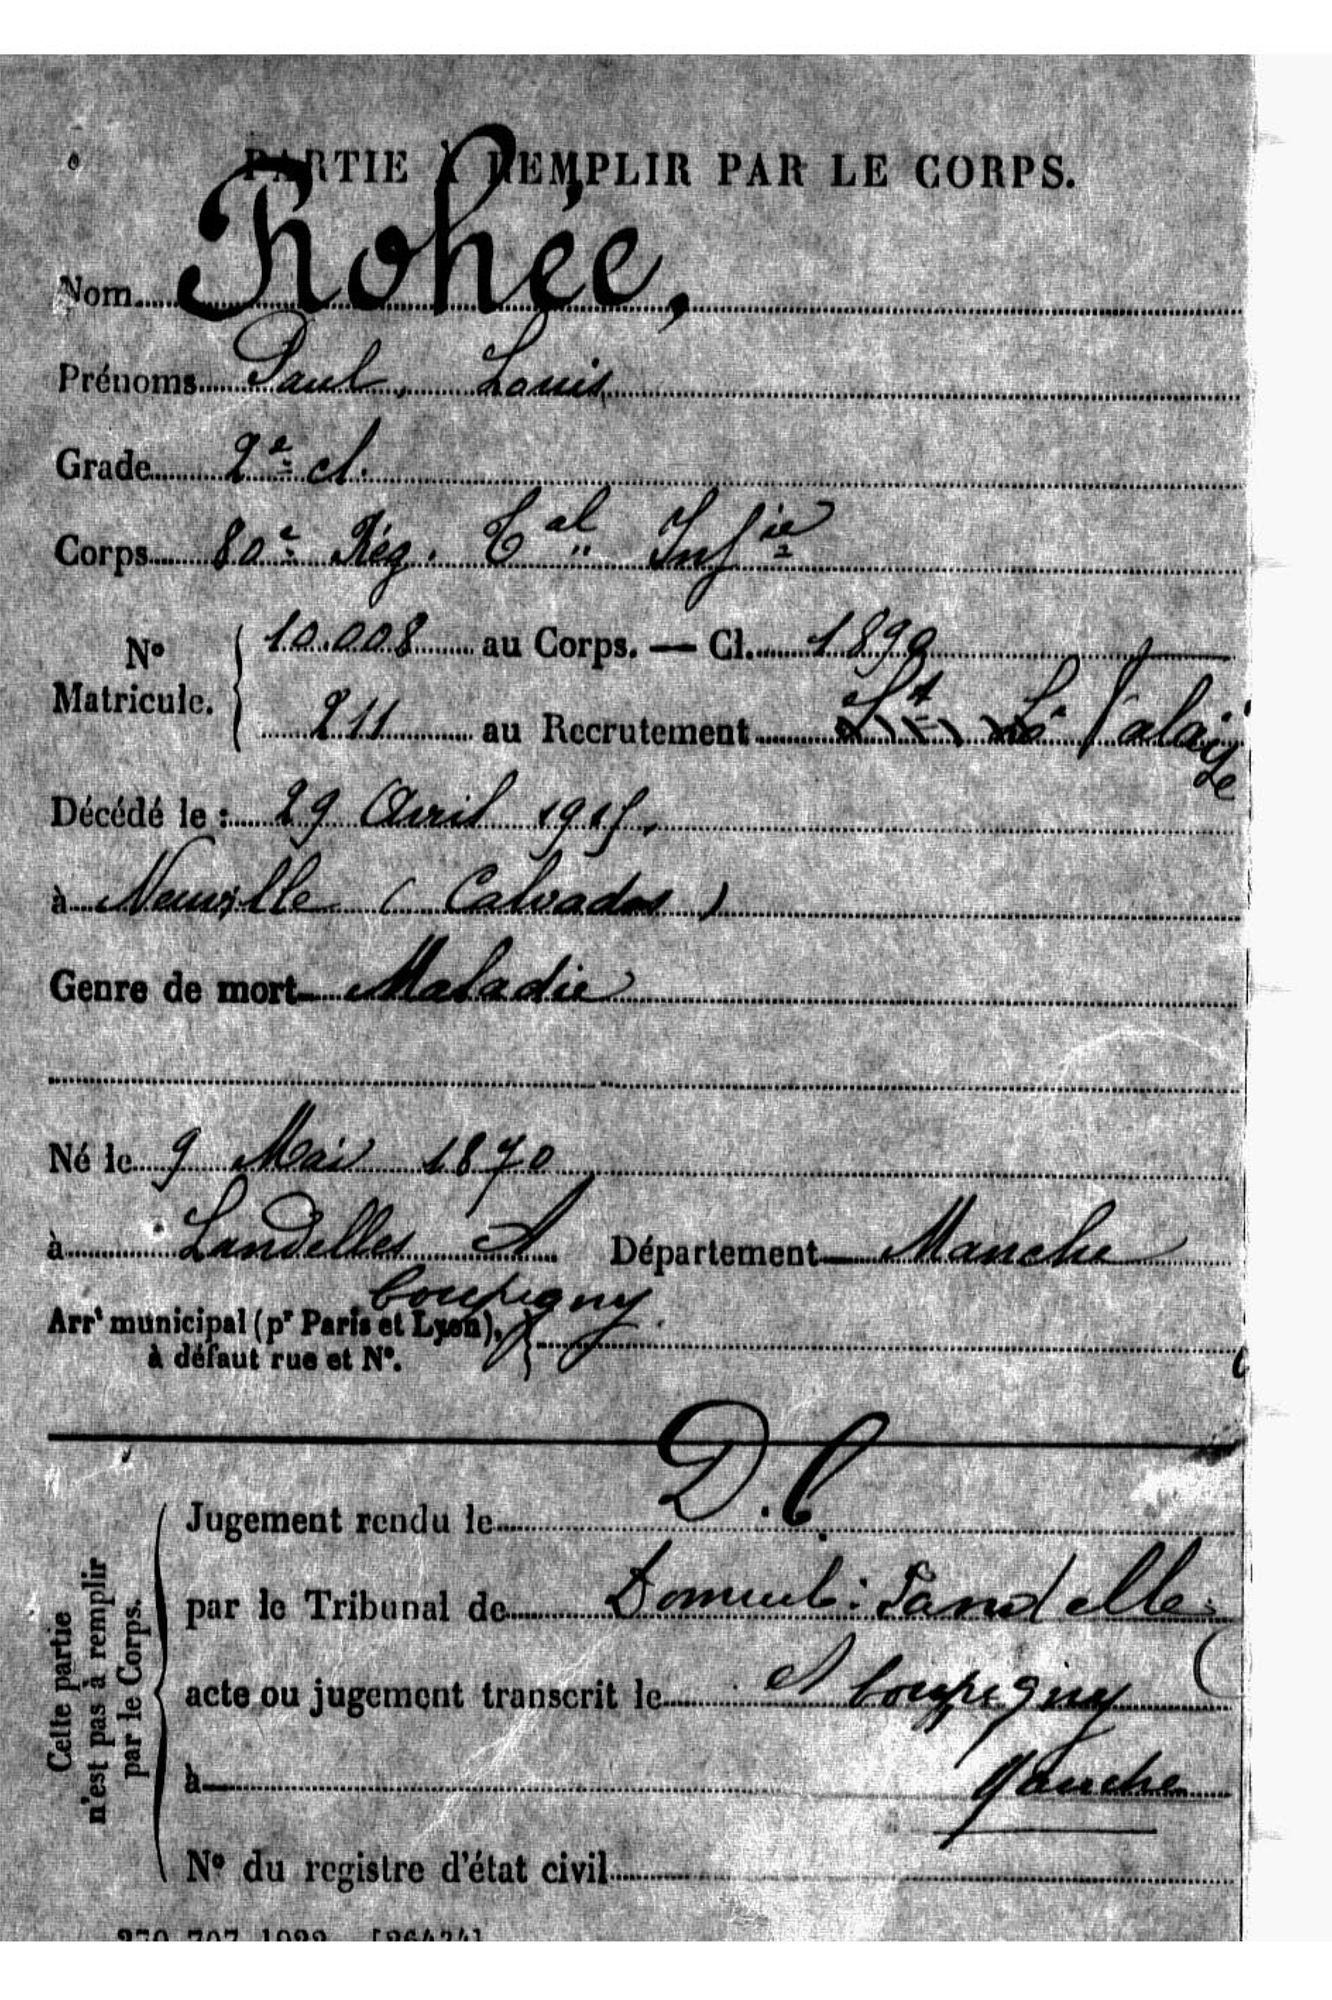 PARTIE À REMPLIR PAR LE CORPS.
Nom Rohée,
Prénoms Paul, Louis
Grade 2e cl.
Corps 80e Rég. Tal Infie
No Matricule. { 10.008 au Corps. — Cl. 1890
211 au Recrutement St Lô Falaise
Décédé le : 29 Avril 1915.
à Neuville (Calvados)
Genre de mort Maladie
Né le 9 Mai 1870
à Landelles et Département Manche
Coupigny
Arrt municipal (pr Paris et Lyon),
à défaut rue et No.
D.C.
Jugement rendu le
par le Tribunal de Domicile : Landelle
acte ou jugement transcrit le et Coupigny
à Manche
No du registre d'état civil
Cette partie
n'est pas à remplir
par le Corps.